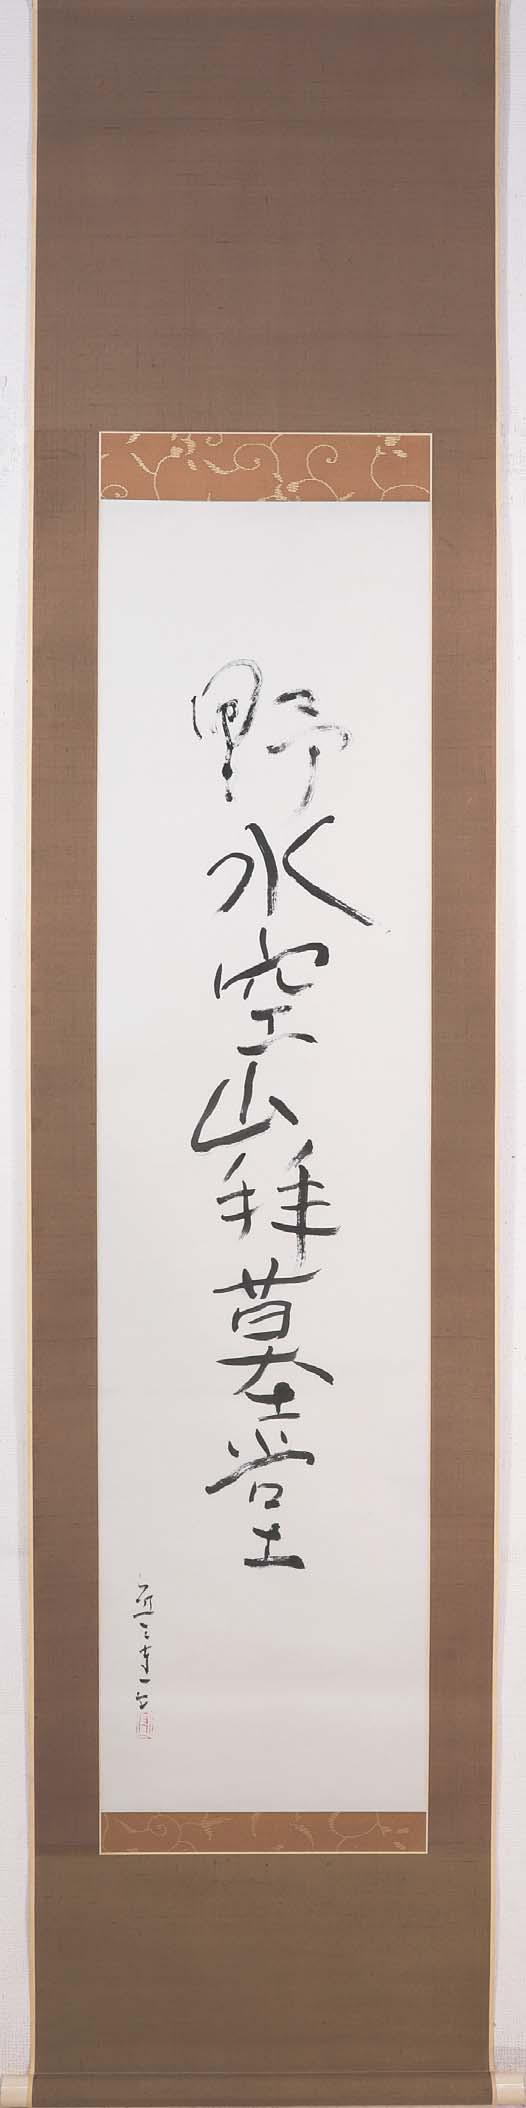 野水空山拝墓堂